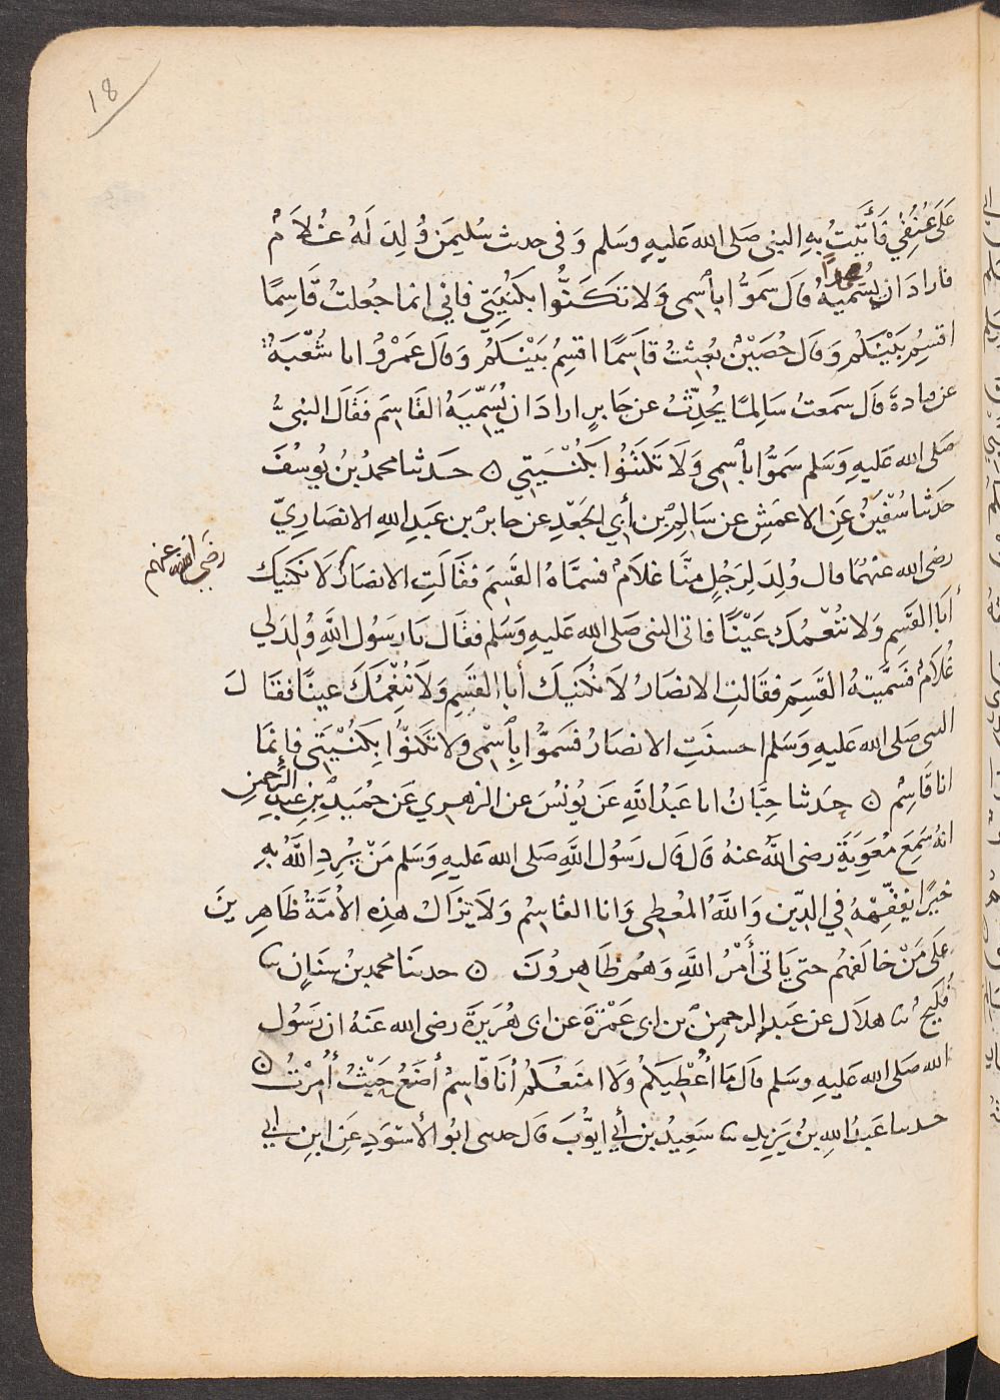 ١٨
عَلَى عُنُقِي فَأَتَيْتُ بِهِ النبى صَلى الله عَليهِ وَسَلم وَفى حدث سُليمَن وُلِدَ لَهُ غُلاَمٌ
فاراد ان يُسَمِّيَهُ محمدًا قال سَمُّوا بِاسمِى وَلا تَكَنُّوا بكُنْيَتِى فاني انما جعُلتُ قَاسِمًا
اقسِمُ بَيْنَكُم وَقال حُصَيْنٌ بُعِثْتُ قاسِمًا اقسِمُ بَيْنَكُم وَقال عَمْرٌو انا شُعْبَةُ
عن قتادة قال سَمعتُ سَالِمًا يُحَدِّثُ عن جَابرٍ اراد ان يُسَمِّيَهُ القَاسِمَ فَقَالَ النبىُّ
صَلى الله عَليهِ وَسَلم سَمُّوا باسمِى وَلَا تَكْتَنُوا بكُنْيَتِي ٥ حَدثنا محمدُ بنُ يُوسُفَ
حَدثنا سُفْيَنُ عَنِ الاعمَشِ عن سَالِمِ بن أبي الجَعْدِ عن جابر بن عَبدِ اللهِ الانصَارِيّ
رضى الله عنهُمَا قال وُلِدَ لِرَجُلٍ مِنَّا غلاَمٌ فسمَّاهُ القَسِمَ فَقَالَتِ الانصَارُ لَا نَكنِيكَ
رضَى الله عنهم
أبَا القَسِمِ وَلا نُنْعِمُكَ عَيْنًا فاتى النبى صَلى الله عَليهِ وَسَلم فقَال يَا رَسُول اللَّهِ وُلِدَ لي
غُلَامٌ فَسَمَّيتهُ القَسِمَ فقَالتِ الانصَارُ لَا نَكنِيكَ أبا القَسِمِ وَلَا نُنْعِمُكَ عينًا فقَالَ
النبى صَلى الله عَليهِ وَسَلم احسنَتِ الانصَارُ فسَمُّوا بِاسْمِى ولا تَكَنَّوا بِكُنْيَتِى فانمَا
انا قَاسِمٌ ٥ حَدثنا حِبَّانُ انا عَبدُ اللَّهِ عَن يُونسُ عن الزهرِي عَن حُمَيدِ بنِ عبدِ الرَّحمنِ
انهُ سَمِعَ مُعَوِيَةَ رضى اللَّه عنهُ قَال قَال رَسُول اللَّهِ صَلى الله عَليهِ وَسَلم مَنْ يُرِدِ اللَّهُ بهِ
خَيرًا يُفَقِّههُ فِي الدِّين وَاللَّهُ المُعْطِى وَانا القَاسِمُ وَلَا يَزَالُ هَذِهِ الأُمَّةُ ظَاهِرِينَ
عَلَى مَنْ خَالَفَهُم حتى يَاتى أَمرُ اللَّهِ وَهُم ظَاهِرُونَ ٥ حدثنَا محمدُ بنُ سِنَانٍ ثنا
فُلَيحٌ ثنا هلَال عن عَبدِ الرحمنِ بن ابى عَمْرَةَ عن ابى هُرَيرَةَ رضى الله عَنهُ ان رَسُول
الله صَلى الله عَليهِ وسَلم قال مَا أُعْطِيكُم وَلَا امنَعُكُم أنَا قَاسِمٌ أضَعُ حَيْثُ أُمِرْتُ ٥
حدثنا عَبدُ اللهِ بنُ يَزِيد ثنا سَعِيدُ بن أبي ايوُّبَ قال حدثنى ابُو الأسْوَدِ عَنِ ابنِ ابي